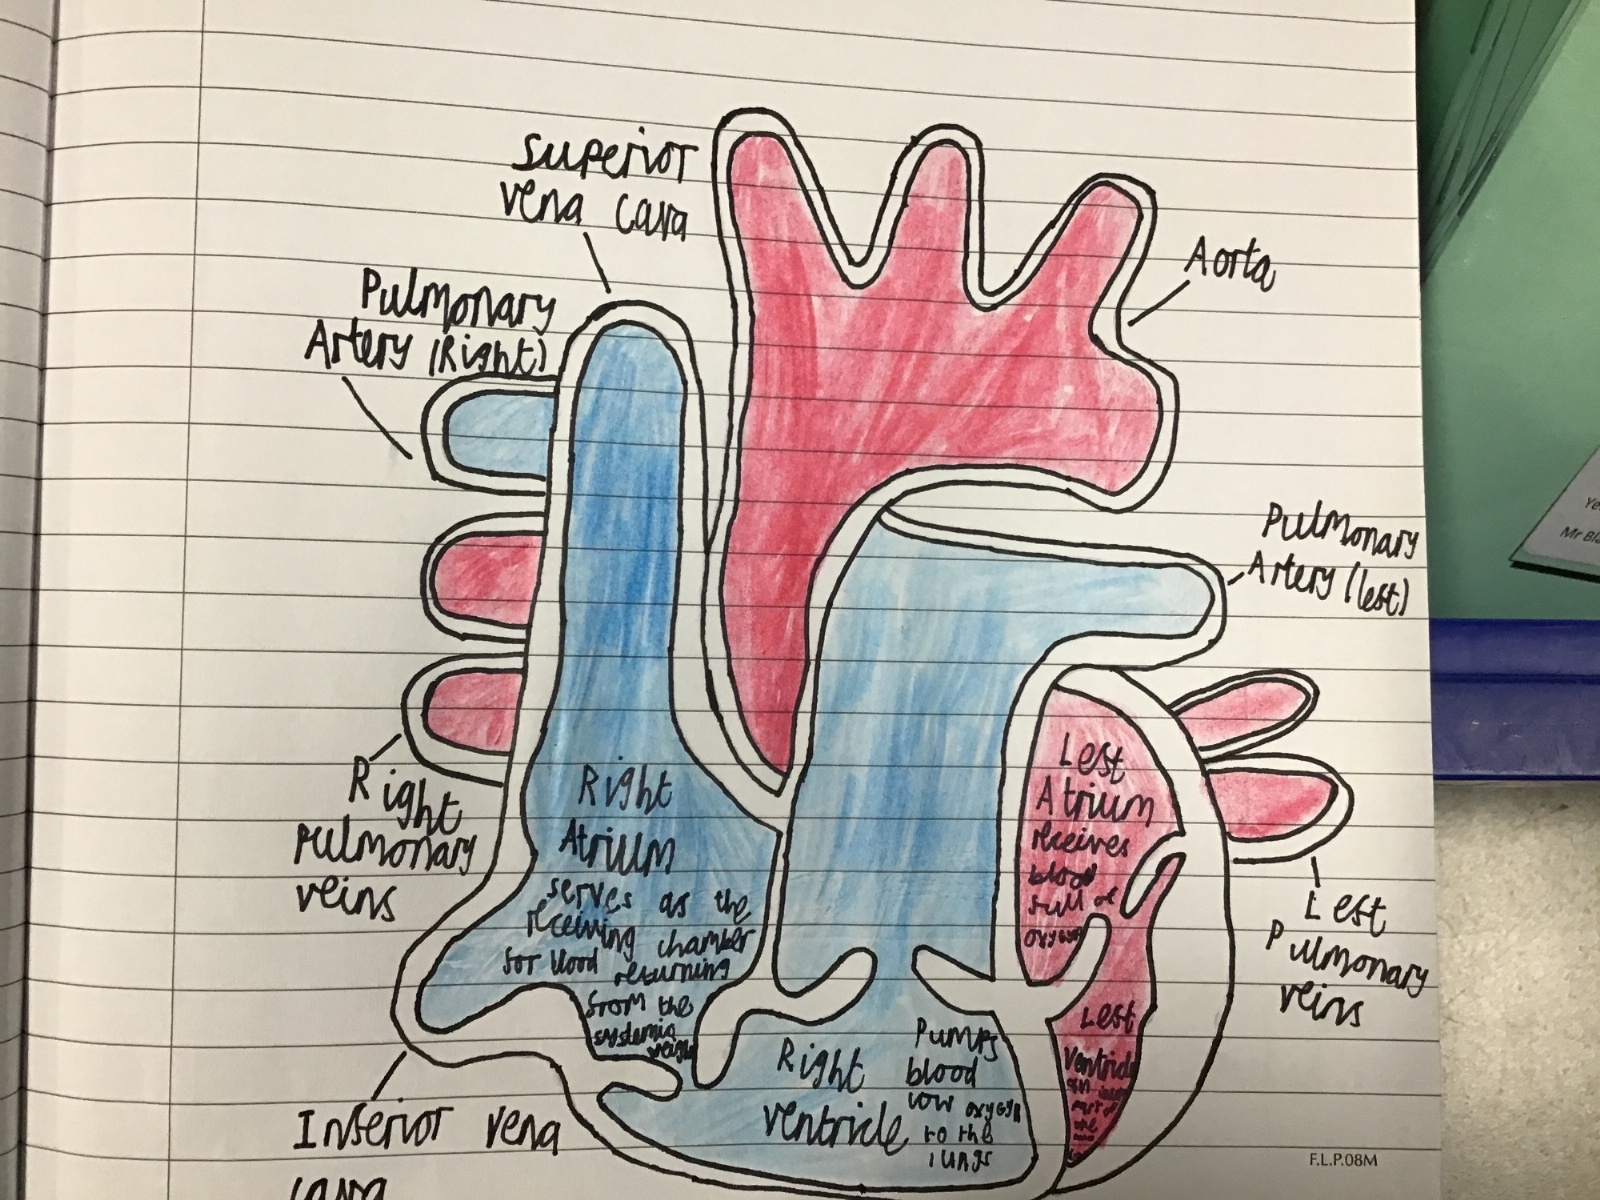 Superior
vena cava
Pulmonary
Artery (Right)
Aorta
Pulmonary
Artery (left)
Right
Pulmonary
veins
Left
Pulmonary
veins
Inferior vena
cava
Right
Atrium
serves as the
receiving chamber
for blood returning
from the
systemic
veins
Left
Atrium
receives
blood
full of
oxygen
Right
ventricle
Pumps
blood
low oxygen
to the
lungs
Left
Ventricle
Mr
F.L.P.08M